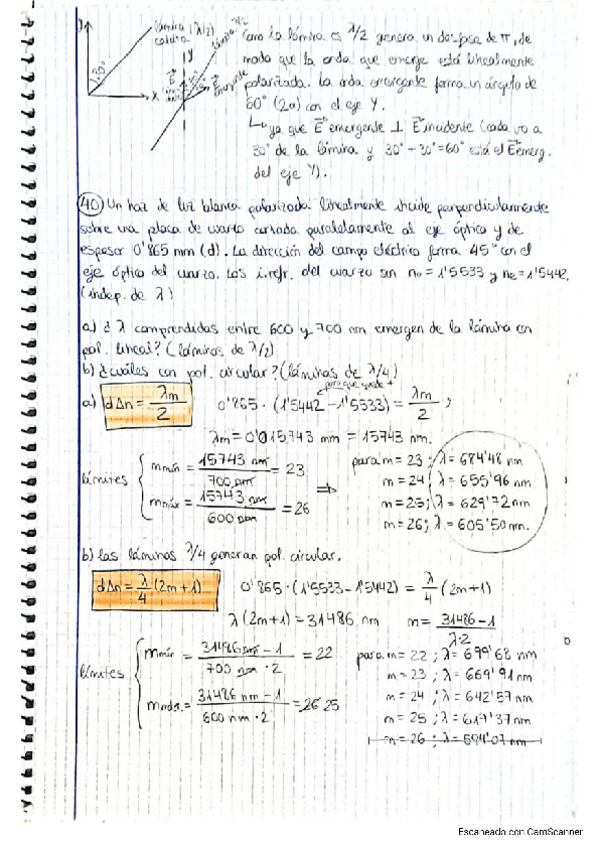 Y
30°
X
lámina (λ/2)
cálcita
Y
E
Emergente
Como la lámina es λ/2 genera un desfase de π, de
modo que la onda que emerge está linealmente
polarizada. La onda emergente forma un ángulo de
60° (2α) con el eje Y.
↳ ya que E emergente ⊥ E incidente (cada vo a
30° de la lámina y 30° + 30° = 60° está el E emerg.
del eje Y).
40) Un haz de luz blanca polarizada linealmente incide perpendicularmente
sobre una placa de cuarzo cortada paralelamente al eje óptico y de
espesor 0'865 mm (d). La dirección del campo eléctrico forma 45° con el
eje óptico del cuarzo. Los i.refr. del cuarzo son no = 1'5533 y ne = 1'5442.
(indep. de λ)
a) ¿λ comprendidas entre 600 y 700 nm emergen de la lámina con
pol. lineal? (láminas de λ/2)
b) ¿cuáles con pol. circular? (láminas de λ/4)
para que quede +
a) dΔn = λm/2 0'865 · (1'5442 - 1'5533) = λm/2 ;
λm = 0'015743 mm = 15743 nm.
límites { mmín = 15743 nm / 700 nm = 23
mmáx = 15743 nm / 600 nm = 26 ⇒
para m = 23 ; λ = 684'48 nm
m = 24 ; λ = 655'96 nm
m = 25 ; λ = 629'72 nm
m = 26 ; λ = 605'50 nm.
b) las láminas λ/4 generan pol. circular.
dΔn = λ/4 (2m+1) 0'865 · (1'5533 - 1'5442) = λ/4 (2m+1)
λ (2m+1) = 31486 nm m = 31486 - 1 / λ·2
límites { mmín = 31486 nm - 1 / 700 nm · 2 = 22
mmáx. = 31486 nm - 1 / 600 nm · 2 = 26'25
para m = 22 ; λ = 699'68 nm
m = 23 ; λ = 669'91 nm
m = 24 ; λ = 642'57 nm
m = 25 ; λ = 617'37 nm
m = 26 ; λ = 594'07 nm
Escaneado con CamScanner